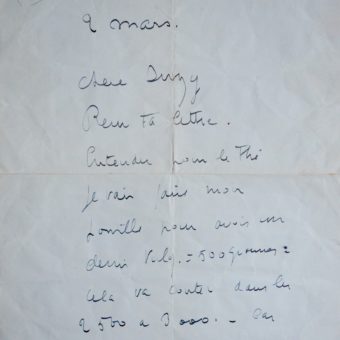 2 mars.
chere Suzy
Reçu ta lettre.
Entendu pour le thé
je vais faire mon
possible pour avoir un
demi kilo. = 500 grammes =
cela va couter dans les
2500 a 3000. – Car